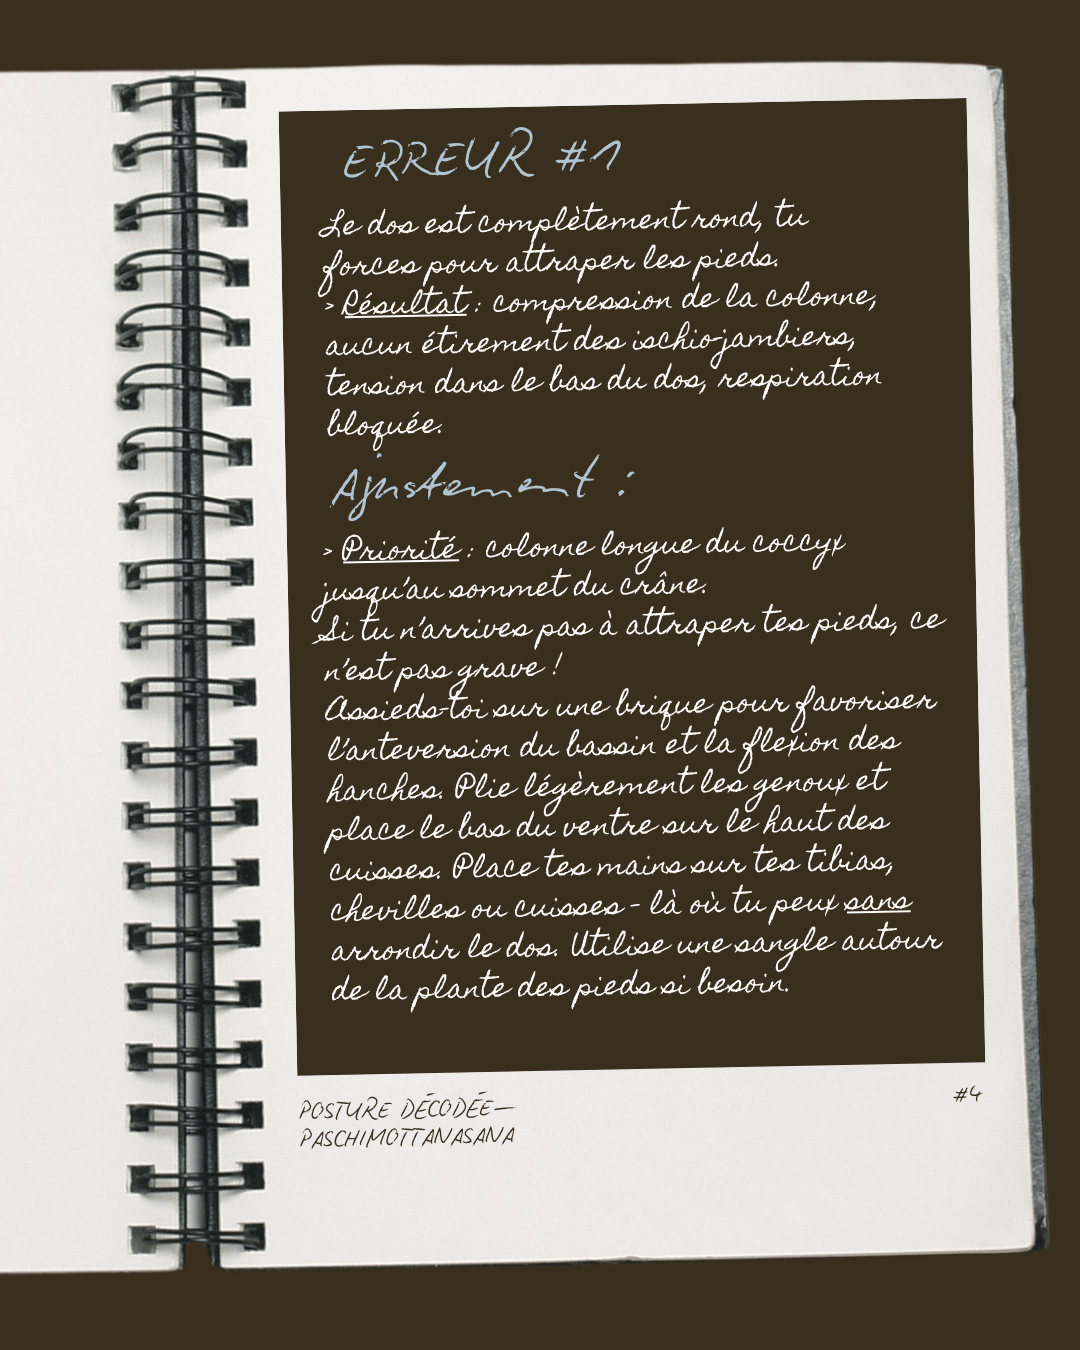 ERREUR #1
Le dos est complètement rond, tu
forces pour attraper les pieds.
> Résultat : compression de la colonne,
aucun étirement des ischio-jambiers,
tension dans le bas du dos, respiration
bloquée.
Ajustement :
> Priorité : colonne longue du coccyx
jusqu'au sommet du crâne.
Si tu n'arrives pas à attraper tes pieds, ce
n'est pas grave !
Assieds-toi sur une brique pour favoriser
l'anteversion du bassin et la flexion des
hanches. Plie légèrement les genoux et
place le bas du ventre sur le haut des
cuisses. Place tes mains sur tes tibias,
chevilles ou cuisses - là où tu peux sans
arrondir le dos. Utilise une sangle autour
de la plante des pieds si besoin.
POSTURE DÉCODÉE—
PASCHIMOTTANASANA
#4